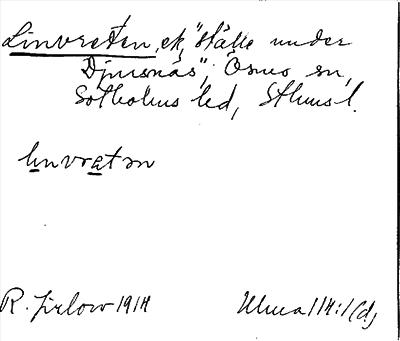 Linvreten, ek, "ställe under
Djursnäs", Ösmo sn,
Sotholms hd, Sthms l.
linvratən
R. Jirlow 1914
Ulma 114:1 (d)